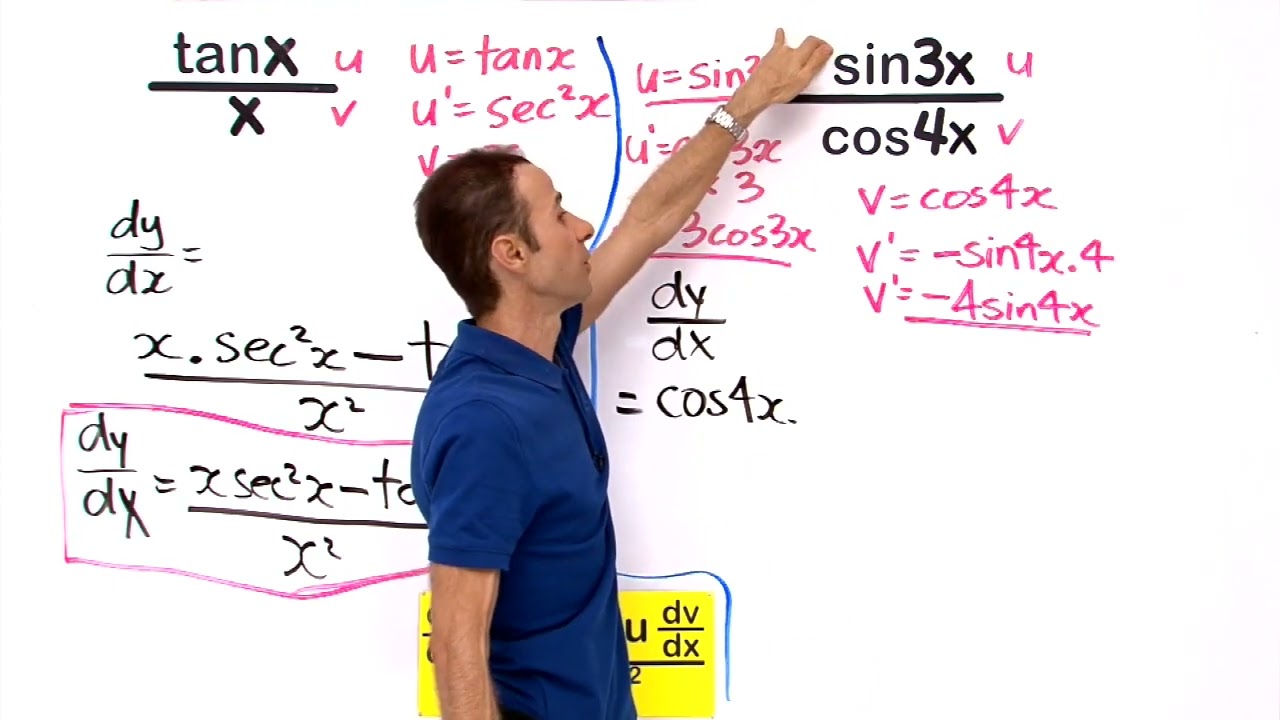 tanx u
x v
u = tanx
u' = sec²x
dy
dx =
x . sec²x −
x²
dy
dx = x sec²x −
x²
u = sin
sin3x u
cos4x v
3x
3
3cos3x
v = cos4x
v' = −sin4x.4
v' = −4sin4x
dy
dx
= cos4x.
u dv
dx
2